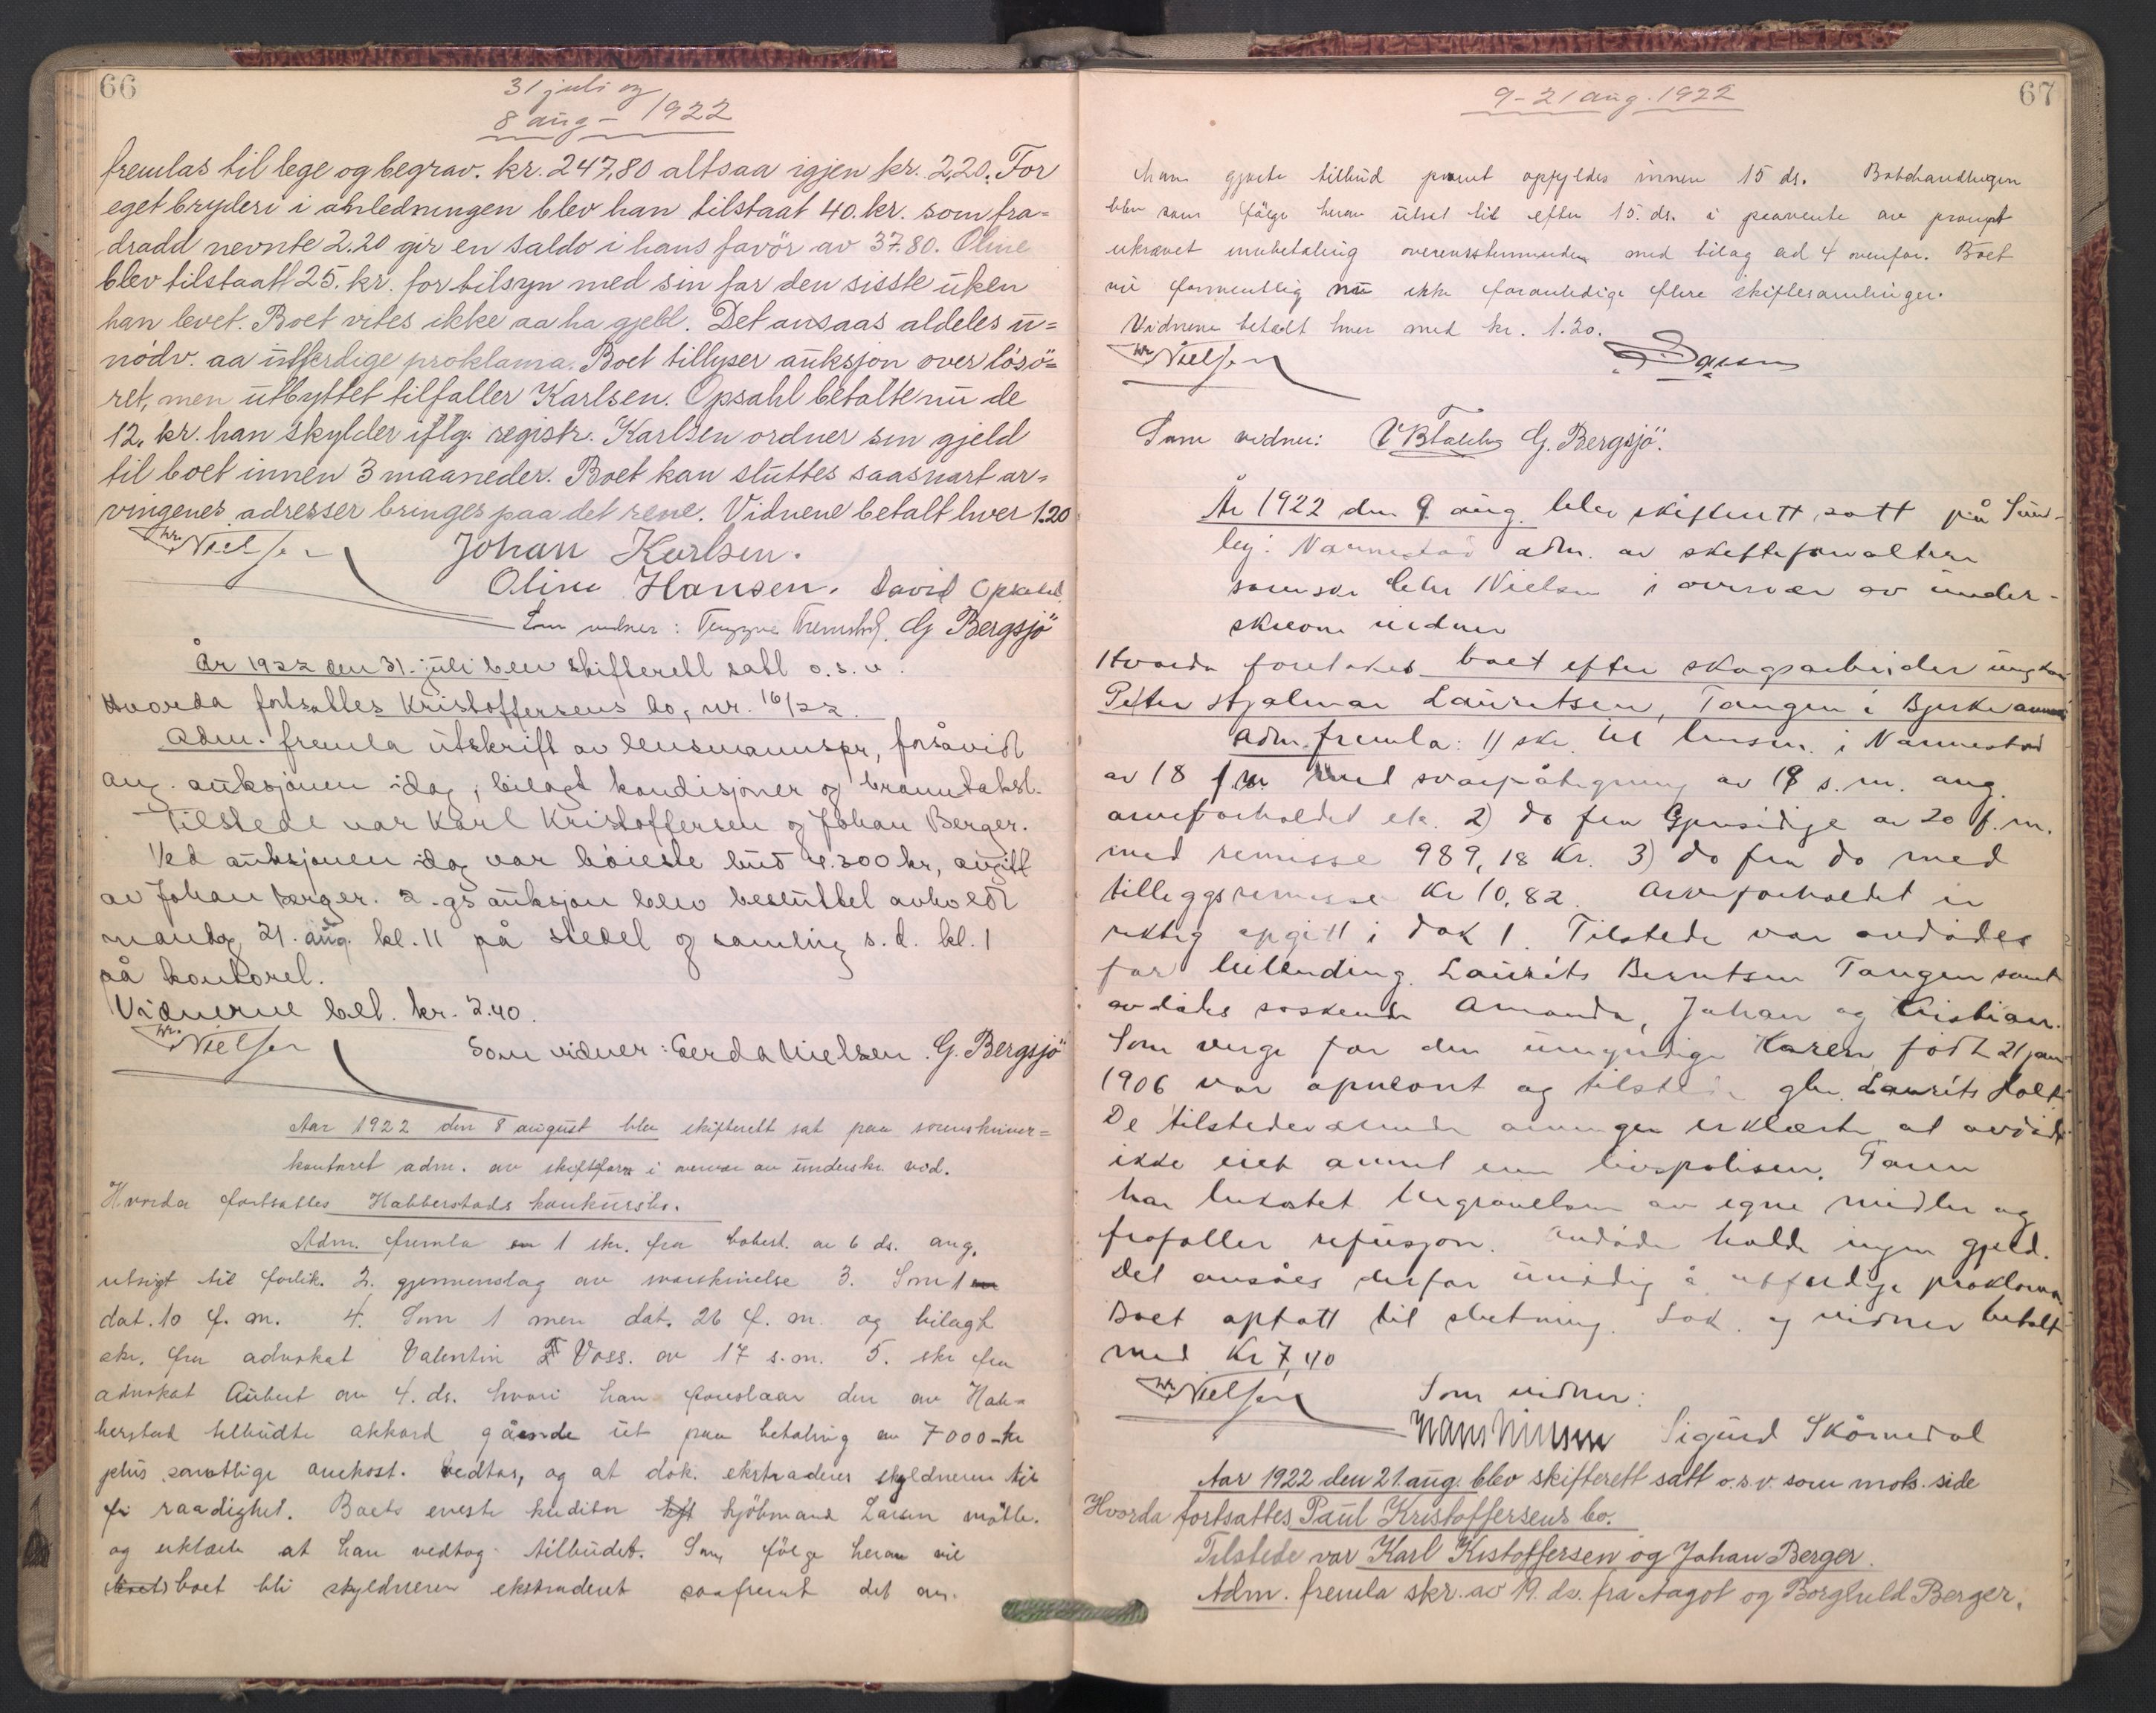 66
31 juli og
8 aug - 1922
fremlas til lege og begrav. kr. 247,80 altsaa igjen kr. 2,20. For
eget bryderi i anledningen blev han tilstaat 40. kr. som fra=
dradd nevnte 2.20 gir en saldo i hans favör av 37.80. Oline
blev tilstaatt 25. kr. for tilsyn med sin far den sisste uken
han levet. Boet vites ikke aa ha gjeld. Det ansaas aldeles u=
nödv. aa utferdige proklama. Boet tillyser auksjon over lösö=
ret, men utbyttet tilfaller Karlsen. Opsahl betalte nu de
12. kr. han skylder iflg. registr. Karlsen ordner sin gjeld
til boet innen 3 maaneder. Boet kan sluttes saasnart ar=
vingenes adresser bringes paa det rene. Vidnene betalt hver 1.20
Wr. Nielsen Johan Karlsen.
Oline Hansen. David Opsahl
Som vidner: G Bergsjö
År 1922 den 31. juli blev skifterett satt o.s.v.
Hvorda fortsattes Kristoffersens bo, nr. 16/22.
Adm. fremla utskrift av lensmannspr, forsåvidt
ang. auksjonen idag, bilagt kondisjoner og branntakst.
Tilstede var Karl Kristoffersen og Johan Berger.
Ved auksjonen idag var höieste bud 4.300 kr, avgitt
av Johan Berger. 2.gs auksjon blev besluttet avholdt
mandag 21. aug. kl. 11 på stedet og samling s.d. kl. 1
på kontoret.
Vidnerne bet. kr. 2.40.
Wr. Nielsen Som vidner: Gerda Nielsen. G. Bergsjö
Aar 1922 den 8 august blev skifterett sat paa sorenskriver=
kontoret adm. av skifteforv i overvær av underskr. vid.
Hvorda fortsattes Habberstads konkursbo.
Adm. fremla en 1 skr. fra bobest. av 6 ds. ang.
utsigt til forlik. 2. gjennemslag av 3. Som 1
dat. 10 f. m. 4. Som 1 men dat. 26 f. m. og bilagt
skr. fra advokat Valentin Voss. av 17 s.m. 5. skr fra
advokat Aubert av 4. ds. hvori han foreslaar den av Hab=
berstad tilbudte akkord gående ut paa betaling av 7000 kr
plus samtlige omkost. vedtas, og at dok. ekstraderes skyldneren til
fri raadighet. Boets eneste kreditor kjöbmand Larsen mötte.
og erklærte at han vedtog tilbudet. Som fölge herav vil
boet bli skyldneren ekstraderet saafremt det av.
67
9 - 21 aug. 1922
ham gjorte tilbud promt opfyldes innen 15 ds. Bobehandlingen
blev som fölge herav utsat til efter 15. ds. i paavente av prompt
ukrævet innbetaling overensstemmende med bilag ad 4 ovenfor. Boet
vil formentlig nu ikke foranledige flere skiftesamlinger.
Vidnene betalt hver med kr. 1.20.
Wr. Nielsen
Som vidner: G. Bergsjö.
År 1922 den 9. aug. blev skifterett satt på
Nannestad adm. av skifteforvalteren
sorenskr Nielsen i overvær av under-
skrevne vidner
Hvorda foretokes boet efter skogsarbeider ungkar
Peter Hjalmar Lauritsen, Tangen i Bjerke
Adm. fremla: 1) skr. til lensm. i Nannestad
av 18 f.m. med svarpåtegning av 19 s.m. ang.
arveforholdet etc. 2) do fra Gjensidige av 20 f.m.
med remisse 989,18 Kr. 3) do fra do med
tilleggsremisse Kr 10,82. Arveforholdet er
riktig opgitt i dok 1. Tilstede var avdödes
far Laurits Berntsen Tangen samt
avdödes söskende Amanda, Johan og Kristian.
Som verge for den umyndige Karen födt 21 jan
1906 var opnevnt og tilstede gbr. Laurits Holt.
De tilstedeværende arvinger erklærte at avdöde
ikke eiet annet enn livspolisen. Faren
har bekostet begravelsen av egne midler og
frafaller refusjon. Avdöde hadde ingen gjeld.
Det ansåes derfor unödig å utferdige proklama
Boet optatt til slutning. Lok. og vidner betalt
med Kr 7,40
Wr. Nielsen Som vidner:
Hans Nielsen Sigurd Skårnedal
Aar 1922 den 21. aug. blev skifterett satt o.s.v. som mots. side
Hvorda fortsattes Paul Kristoffersens bo.
Tilstede var Karl Kistoffersen og Johan Berger.
Adm. fremla skr. av 19. ds. fra Aagot og Borghild Berger.